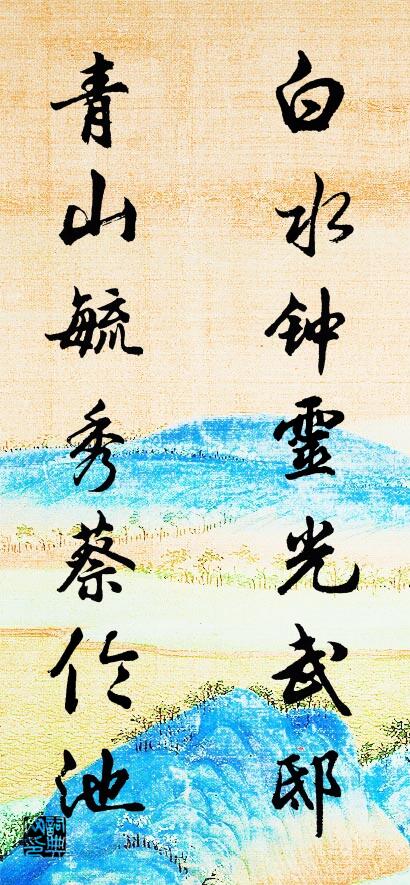 白水钟靈光武邸
青山毓秀蔡伦池